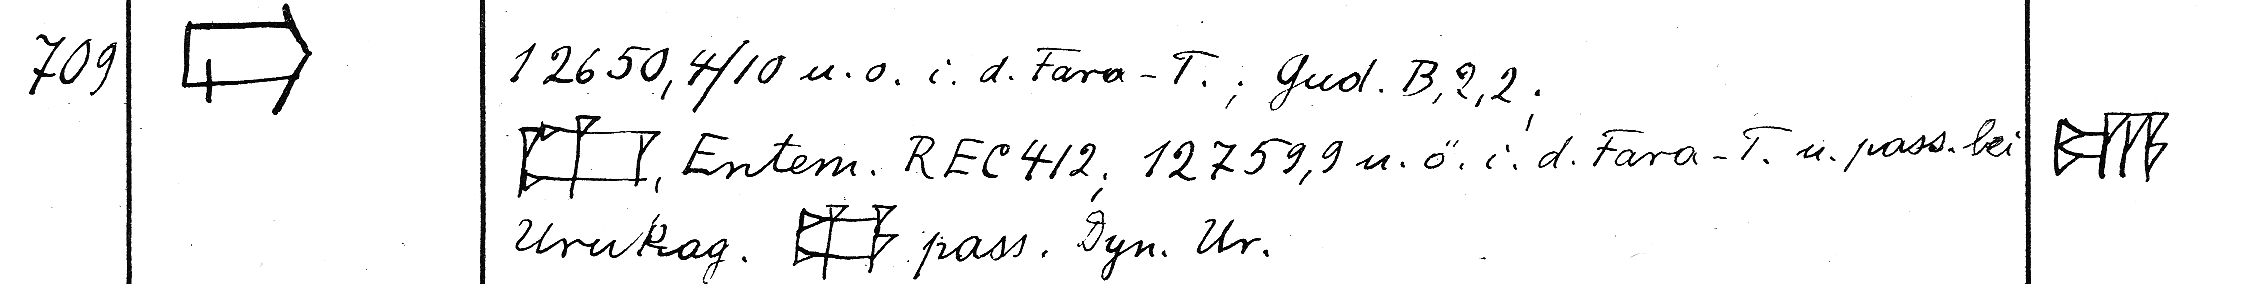 709 12650,4/10 u. o. i. d. Fara-T.; Gud. B,2,2;
, Entem. REC 412; 12759,9 u. ö. i. d. Fara-T. u. pass. bei
Urukag. pass. Dyn. Ur.